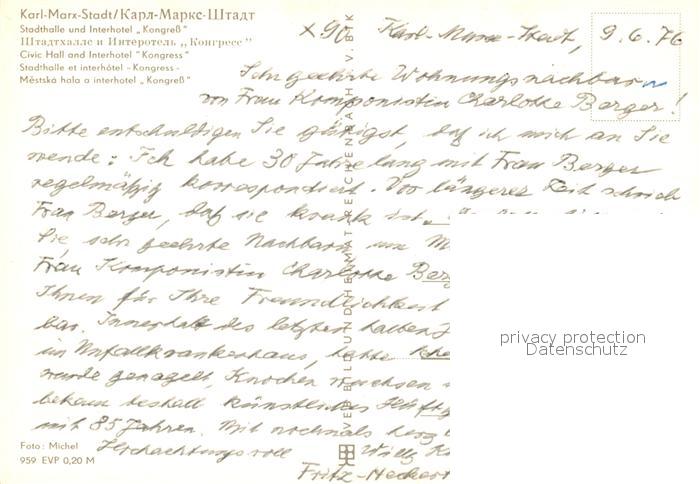 Karl-Marx-Stadt/Карл-Маркс-Штадт
Stadthalle und Interhotel „Kongreß"
Штадтхалле и Интеротель „Конгресс"
Civic Hall and Interhotel "Kongress"
Stadthalle et interhôtel - Kongress -
Městská hala a interhotel „Kongreß"
x 90 Karl-Marx-Stadt, 9.6.76
Sehr geehrte Wohnungsnachbarn
von Frau Komponistin Charlotte Berger!
Bitte entschuldigen Sie gütigst, daß ich mich an Sie
wende: Ich habe 30 Jahre lang mit Frau Berger
regelmäßig korrespondiert. Vor längerer Zeit schrieb
Frau Berger, daß sie krank ist.
Sie, sehr geehrte Nachbarn, um
Frau Komponistin Charlotte Berg
Ihnen für Ihre Freundlichkeit
bar. Innerhalb des letzten halben J
im Unfallkrankenhaus, hatte
wurde genagelt, Knochen wachsen
bekam deshalb künstliches Hüftg
mit 85 Jahren. Mit nochmals herz
Hochachtungsvoll Willy K
Fritz-Heckert
privacy protection
Datenschutz
Foto: Michel
959 EVP 0,20 M
VEB BILD UND HEIMAT REICHENBACH I. V. BTK